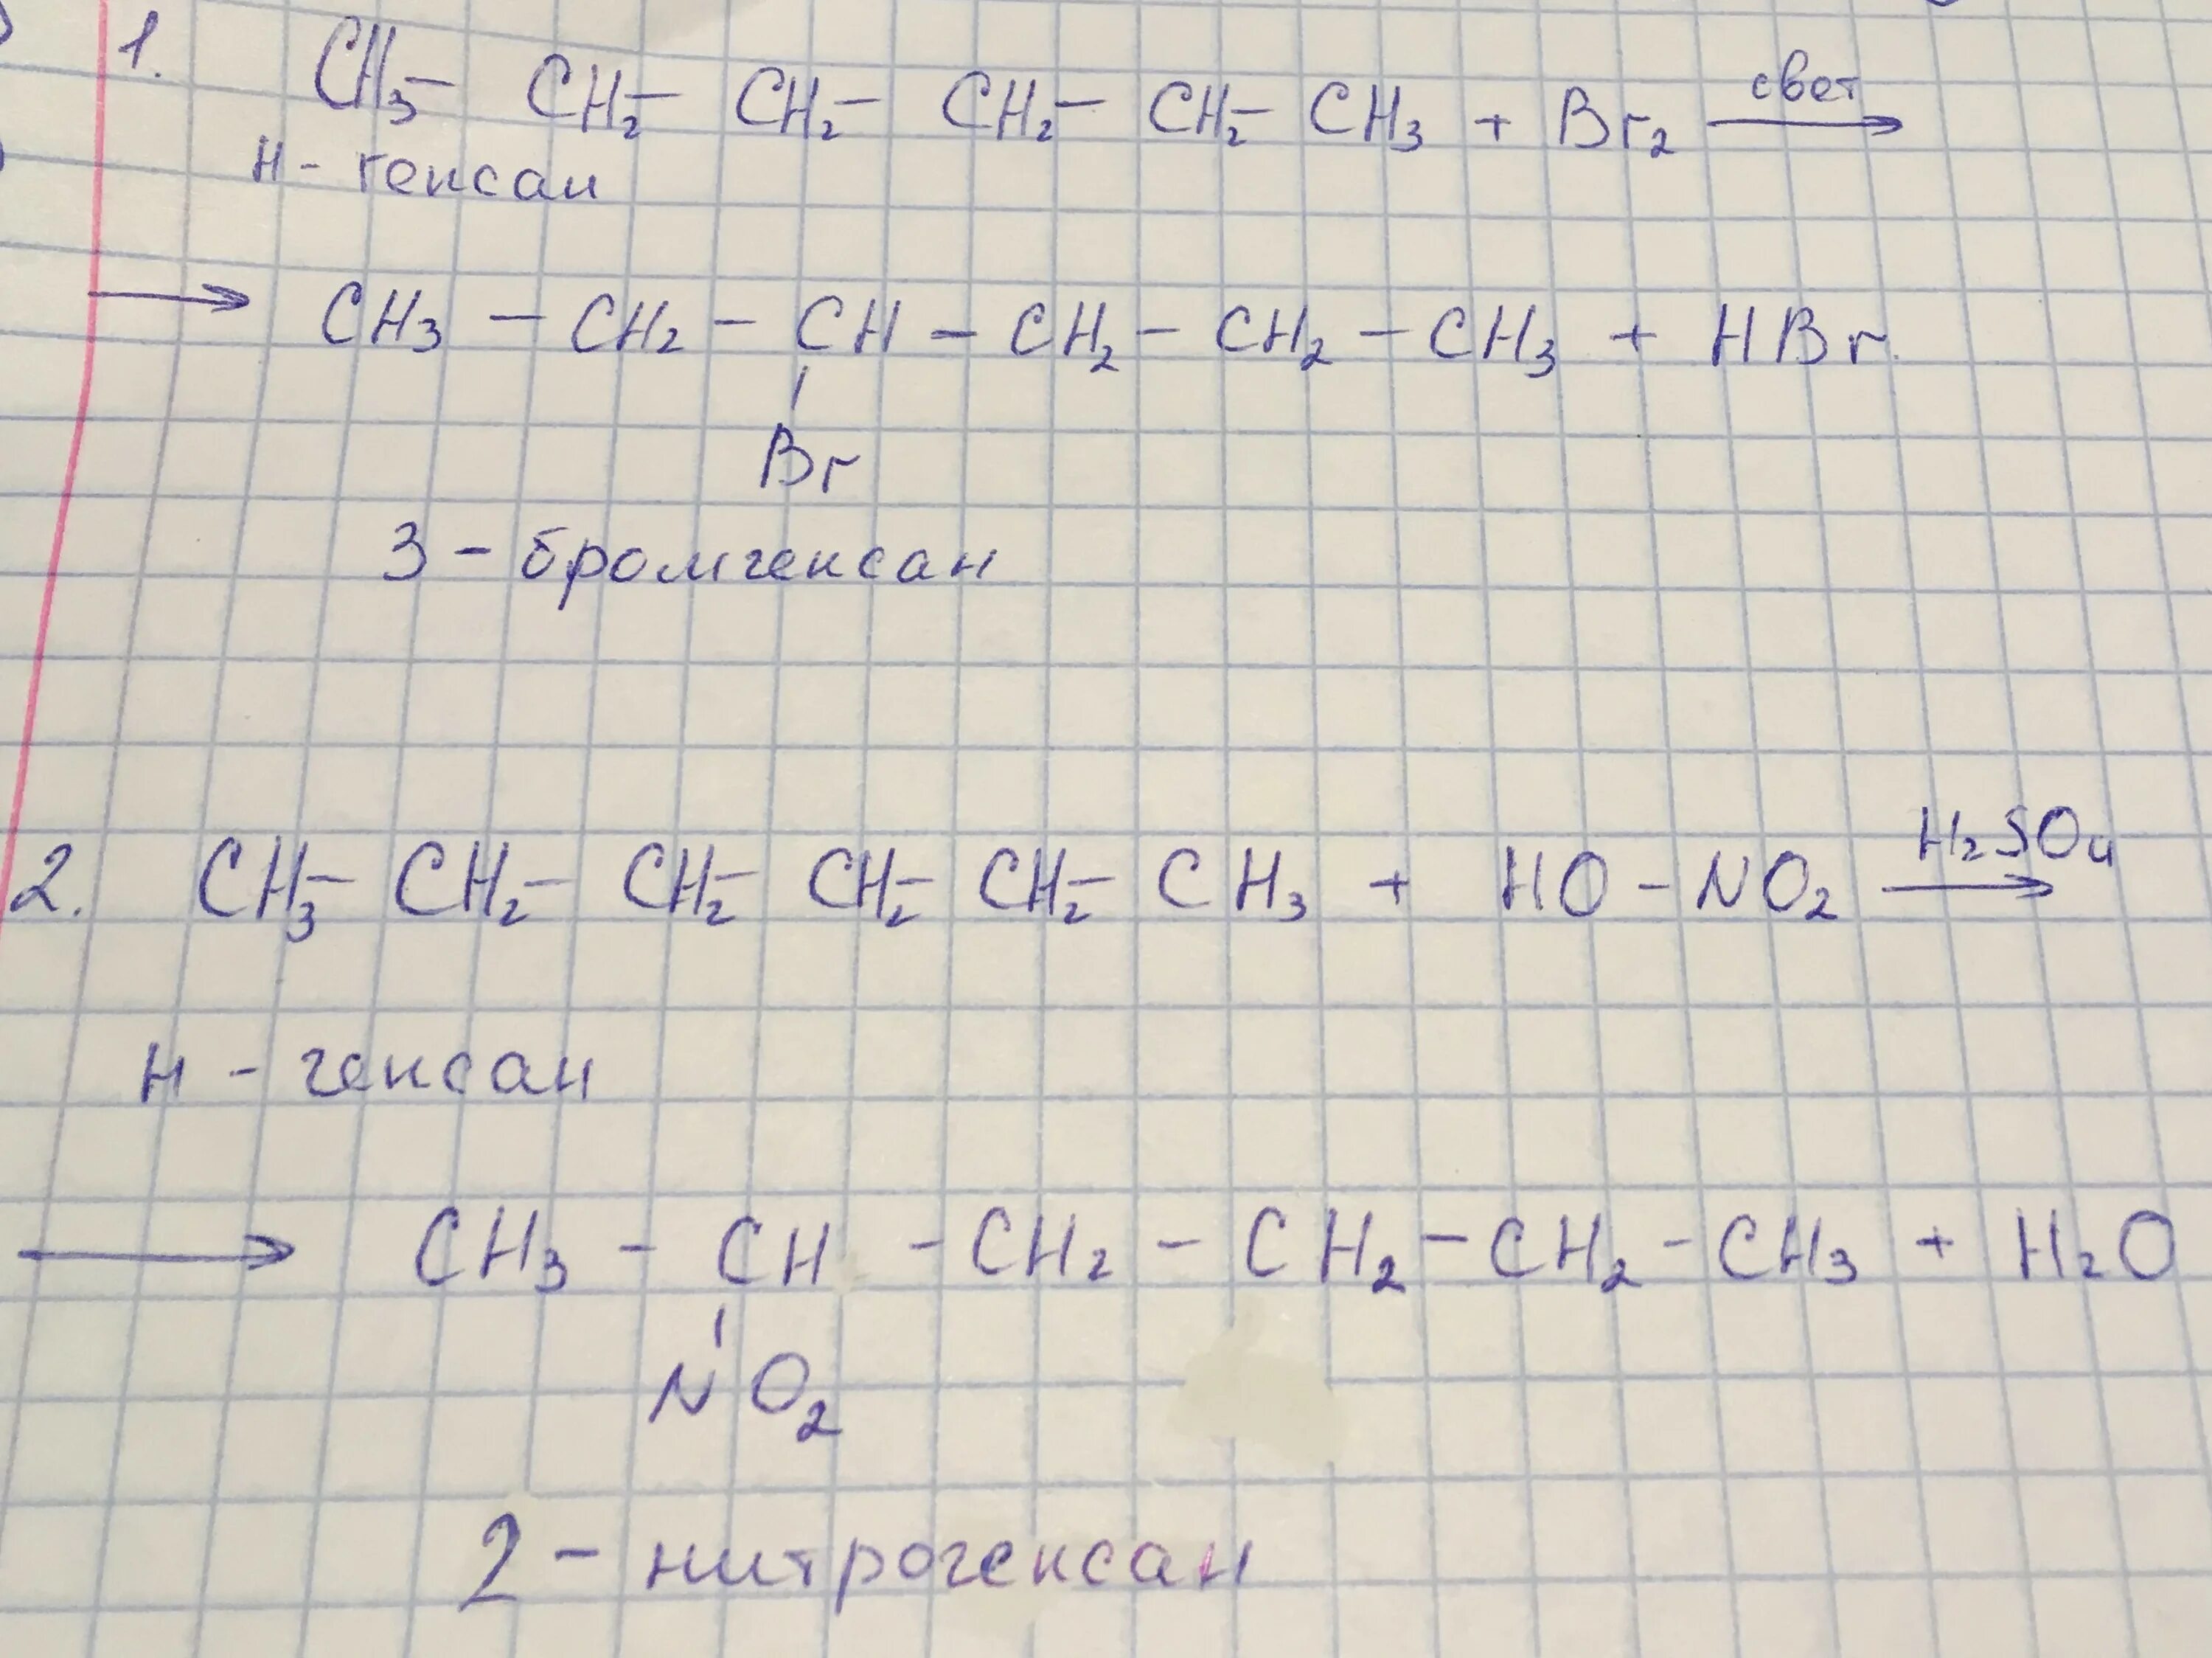 1. CH₃ - CH₂ - CH₂ - CH₂ - CH₂ - CH₃ + Br₂ свет →
н - гексан
→ CH₃ - CH₂ - CH - CH₂ - CH₂ - CH₃ + HBr
Br
3 - бромгексан
2. CH₃ - CH₂ - CH₂ - CH₂ - CH₂ - CH₃ + HO - NO₂ H₂SO₄ →
н - гексан
→ CH₃ - CH - CH₂ - CH₂ - CH₂ - CH₃ + H₂O
NO₂
2 - нитрогексан